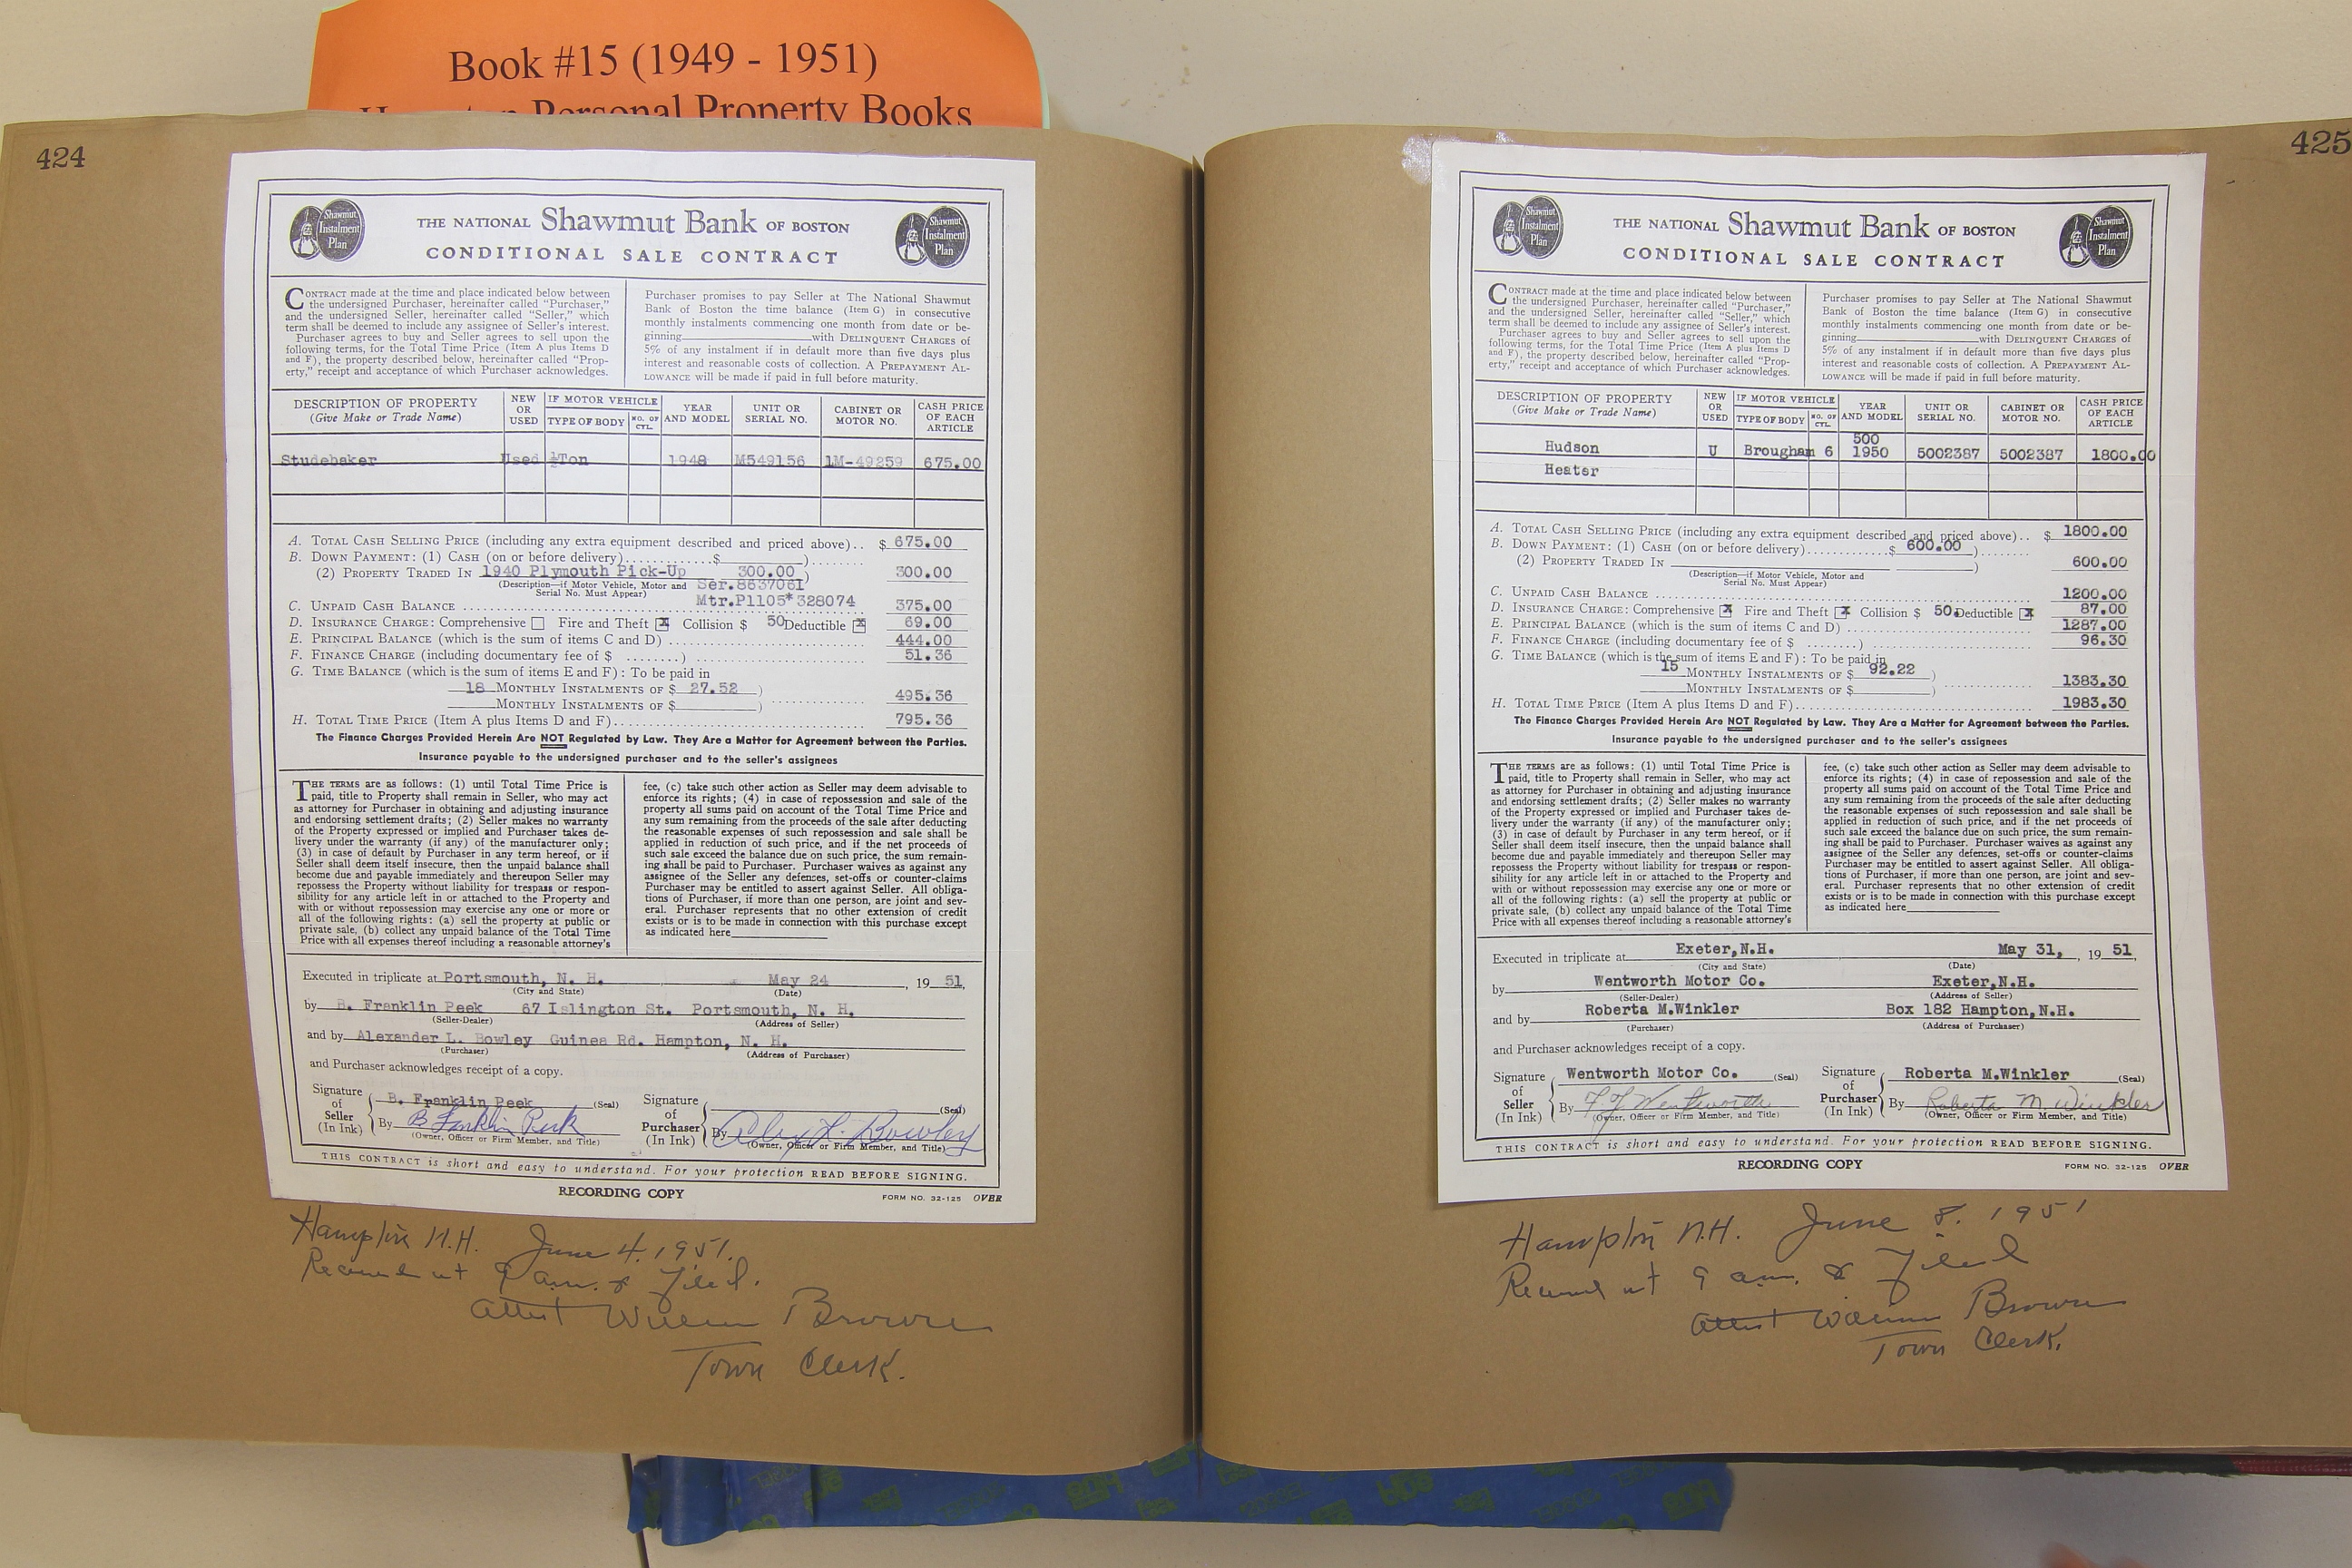 Book #15 (1949 - 1951)
Personal Property Books
424
Shawmut
Instalment
Plan
THE NATIONAL Shawmut Bank OF BOSTON
CONDITIONAL SALE CONTRACT
Shawmut
Instalment
Plan
CONTRACT made at the time and place indicated below between
the undersigned Purchaser, hereinafter called "Purchaser,"
and the undersigned Seller, hereinafter called "Seller," which
term shall be deemed to include any assignee of Seller's interest.
Purchaser agrees to buy and Seller agrees to sell upon the
following terms, for the Total Time Price (Item A plus Items D
and F), the property described below, hereinafter called "Prop-
erty," receipt and acceptance of which Purchaser acknowledges.
Purchaser promises to pay Seller at The National Shawmut
Bank of Boston the time balance (Item G) in consecutive
monthly instalments commencing one month from date or be-
ginning with DELINQUENT CHARGES of
5% of any instalment if in default more than five days plus
interest and reasonable costs of collection. A PREPAYMENT AL-
LOWANCE will be made if paid in full before maturity.
DESCRIPTION OF PROPERTY (Give Make or Trade Name) NEW OR USED IF MOTOR VEHICLE TYPE OF BODY NO. OF CYL. YEAR AND MODEL UNIT OR SERIAL NO. CABINET OR MOTOR NO. CASH PRICE OF EACH ARTICLE
Studebaker Used ½Ton 1948 M549156 1M-49259 675.00
A. TOTAL CASH SELLING PRICE (including any extra equipment described and priced above).. $ 675.00
B. DOWN PAYMENT: (1) CASH (on or before delivery)..........$ )
(2) PROPERTY TRADED IN 1940 Plymouth Pick-Up 300.00 ) 300.00
(Description—if Motor Vehicle, Motor and Serial No. Must Appear) Ser.8637061
Mtr.P1105*328074
C. UNPAID CASH BALANCE 375.00
D. INSURANCE CHARGE: Comprehensive Fire and Theft X Collision $ 50 Deductible X 69.00
E. PRINCIPAL BALANCE (which is the sum of items C and D) 444.00
F. FINANCE CHARGE (including documentary fee of $ ........) 51.36
G. TIME BALANCE (which is the sum of items E and F): To be paid in
18 MONTHLY INSTALMENTS OF $ 27.52 ) 495.36
MONTHLY INSTALMENTS OF $ )
H. TOTAL TIME PRICE (Item A plus Items D and F) 795.36
The Finance Charges Provided Herein Are NOT Regulated by Law. They Are a Matter for Agreement between the Parties.
Insurance payable to the undersigned purchaser and to the seller's assignees
THE TERMS are as follows: (1) until Total Time Price is
paid, title to Property shall remain in Seller, who may act
as attorney for Purchaser in obtaining and adjusting insurance
and endorsing settlement drafts; (2) Seller makes no warranty
of the Property expressed or implied and Purchaser takes de-
livery under the warranty (if any) of the manufacturer only;
(3) in case of default by Purchaser in any term hereof, or if
Seller shall deem itself insecure, then the unpaid balance shall
become due and payable immediately and thereupon Seller may
repossess the Property without liability for trespass or respon-
sibility for any article left in or attached to the Property and
with or without repossession may exercise any one or more or
all of the following rights: (a) sell the property at public or
private sale, (b) collect any unpaid balance of the Total Time
Price with all expenses thereof including a reasonable attorney's
fee, (c) take such other action as Seller may deem advisable to
enforce its rights; (4) in case of repossession and sale of the
property all sums paid on account of the Total Time Price and
any sum remaining from the proceeds of the sale after deducting
the reasonable expenses of such repossession and sale shall be
applied in reduction of such price, and if the net proceeds of
such sale exceed the balance due on such price, the sum remain-
ing shall be paid to Purchaser. Purchaser waives as against any
assignee of the Seller any defences, set-offs or counter-claims
Purchaser may be entitled to assert against Seller. All obliga-
tions of Purchaser, if more than one person, are joint and sev-
eral. Purchaser represents that no other extension of credit
exists or is to be made in connection with this purchase except
as indicated here
Executed in triplicate at Portsmouth, N. H. May 24, 19 51,
(City and State) (Date)
by B. Franklin Peek 67 Islington St. Portsmouth, N. H.
(Seller-Dealer) (Address of Seller)
and by Alexander L. Bowley Guinea Rd. Hampton, N. H.
(Purchaser) (Address of Purchaser)
and Purchaser acknowledges receipt of a copy.
Signature of Seller (In Ink) B. Franklin Peek (Seal)
By B Franklin Peek
(Owner, Officer or Firm Member, and Title)
Signature of Purchaser (In Ink) (Seal)
By Alex L. Bowley
(Owner, Officer or Firm Member, and Title)
THIS CONTRACT is short and easy to understand. For your protection READ BEFORE SIGNING.
RECORDING COPY FORM NO. 32-125 OVER
Hampton N.H. June 4. 1951.
Received at 9 a.m. & Filed.
Attest William Brown
Town Clerk.
425
Shawmut
Instalment
Plan
THE NATIONAL Shawmut Bank OF BOSTON
CONDITIONAL SALE CONTRACT
Shawmut
Instalment
Plan
CONTRACT made at the time and place indicated below between
the undersigned Purchaser, hereinafter called "Purchaser,"
and the undersigned Seller, hereinafter called "Seller," which
term shall be deemed to include any assignee of Seller's interest.
Purchaser agrees to buy and Seller agrees to sell upon the
following terms, for the Total Time Price (Item A plus Items D
and F), the property described below, hereinafter called "Prop-
erty," receipt and acceptance of which Purchaser acknowledges.
Purchaser promises to pay Seller at The National Shawmut
Bank of Boston the time balance (Item G) in consecutive
monthly instalments commencing one month from date or be-
ginning with DELINQUENT CHARGES of
5% of any instalment if in default more than five days plus
interest and reasonable costs of collection. A PREPAYMENT AL-
LOWANCE will be made if paid in full before maturity.
DESCRIPTION OF PROPERTY (Give Make or Trade Name) NEW OR USED IF MOTOR VEHICLE TYPE OF BODY NO. OF CYL. YEAR AND MODEL UNIT OR SERIAL NO. CABINET OR MOTOR NO. CASH PRICE OF EACH ARTICLE
500
Hudson U Brougham 6 1950 5002387 5002387 1800.00
Heater
A. TOTAL CASH SELLING PRICE (including any extra equipment described and priced above).. $ 1800.00
B. DOWN PAYMENT: (1) CASH (on or before delivery)............$ 600.00 )
(2) PROPERTY TRADED IN ) 600.00
(Description—if Motor Vehicle, Motor and Serial No. Must Appear)
C. UNPAID CASH BALANCE 1200.00
D. INSURANCE CHARGE: Comprehensive X Fire and Theft X Collision $ 50. Deductible X 87.00
E. PRINCIPAL BALANCE (which is the sum of items C and D) 1287.00
F. FINANCE CHARGE (including documentary fee of $ ........) 96.30
G. TIME BALANCE (which is the sum of items E and F): To be paid in
15 MONTHLY INSTALMENTS OF $ 92.22 )
MONTHLY INSTALMENTS OF $ ) 1383.30
H. TOTAL TIME PRICE (Item A plus Items D and F) 1983.30
The Finance Charges Provided Herein Are NOT Regulated by Law. They Are a Matter for Agreement between the Parties.
Insurance payable to the undersigned purchaser and to the seller's assignees
THE TERMS are as follows: (1) until Total Time Price is
paid, title to Property shall remain in Seller, who may act
as attorney for Purchaser in obtaining and adjusting insurance
and endorsing settlement drafts; (2) Seller makes no warranty
of the Property expressed or implied and Purchaser takes de-
livery under the warranty (if any) of the manufacturer only;
(3) in case of default by Purchaser in any term hereof, or if
Seller shall deem itself insecure, then the unpaid balance shall
become due and payable immediately and thereupon Seller may
repossess the Property without liability for trespass or respon-
sibility for any article left in or attached to the Property and
with or without repossession may exercise any one or more or
all of the following rights: (a) sell the property at public or
private sale, (b) collect any unpaid balance of the Total Time
Price with all expenses thereof including a reasonable attorney's
fee, (c) take such other action as Seller may deem advisable to
enforce its rights; (4) in case of repossession and sale of the
property all sums paid on account of the Total Time Price and
any sum remaining from the proceeds of the sale after deducting
the reasonable expenses of such repossession and sale shall be
applied in reduction of such price, and if the net proceeds of
such sale exceed the balance due on such price, the sum remain-
ing shall be paid to Purchaser. Purchaser waives as against any
assignee of the Seller any defences, set-offs or counter-claims
Purchaser may be entitled to assert against Seller. All obliga-
tions of Purchaser, if more than one person, are joint and sev-
eral. Purchaser represents that no other extension of credit
exists or is to be made in connection with this purchase except
as indicated here
Executed in triplicate at Exeter,N.H. May 31, , 19 51,
(City and State) (Date)
by Wentworth Motor Co. Exeter,N.H.
(Seller-Dealer) (Address of Seller)
and by Roberta M.Winkler Box 182 Hampton,N.H.
(Purchaser) (Address of Purchaser)
and Purchaser acknowledges receipt of a copy.
Signature of Seller (In Ink) Wentworth Motor Co. (Seal)
By Wentworth
(Owner, Officer or Firm Member, and Title)
Signature of Purchaser (In Ink) Roberta M.Winkler (Seal)
By Roberta M Winkler
(Owner, Officer or Firm Member, and Title)
THIS CONTRACT is short and easy to understand. For your protection READ BEFORE SIGNING.
RECORDING COPY FORM NO. 32-125 OVER
Hampton N.H. June 8. 1951
Received at 9 a.m. & Filed
Attest William Brown
Town Clerk.